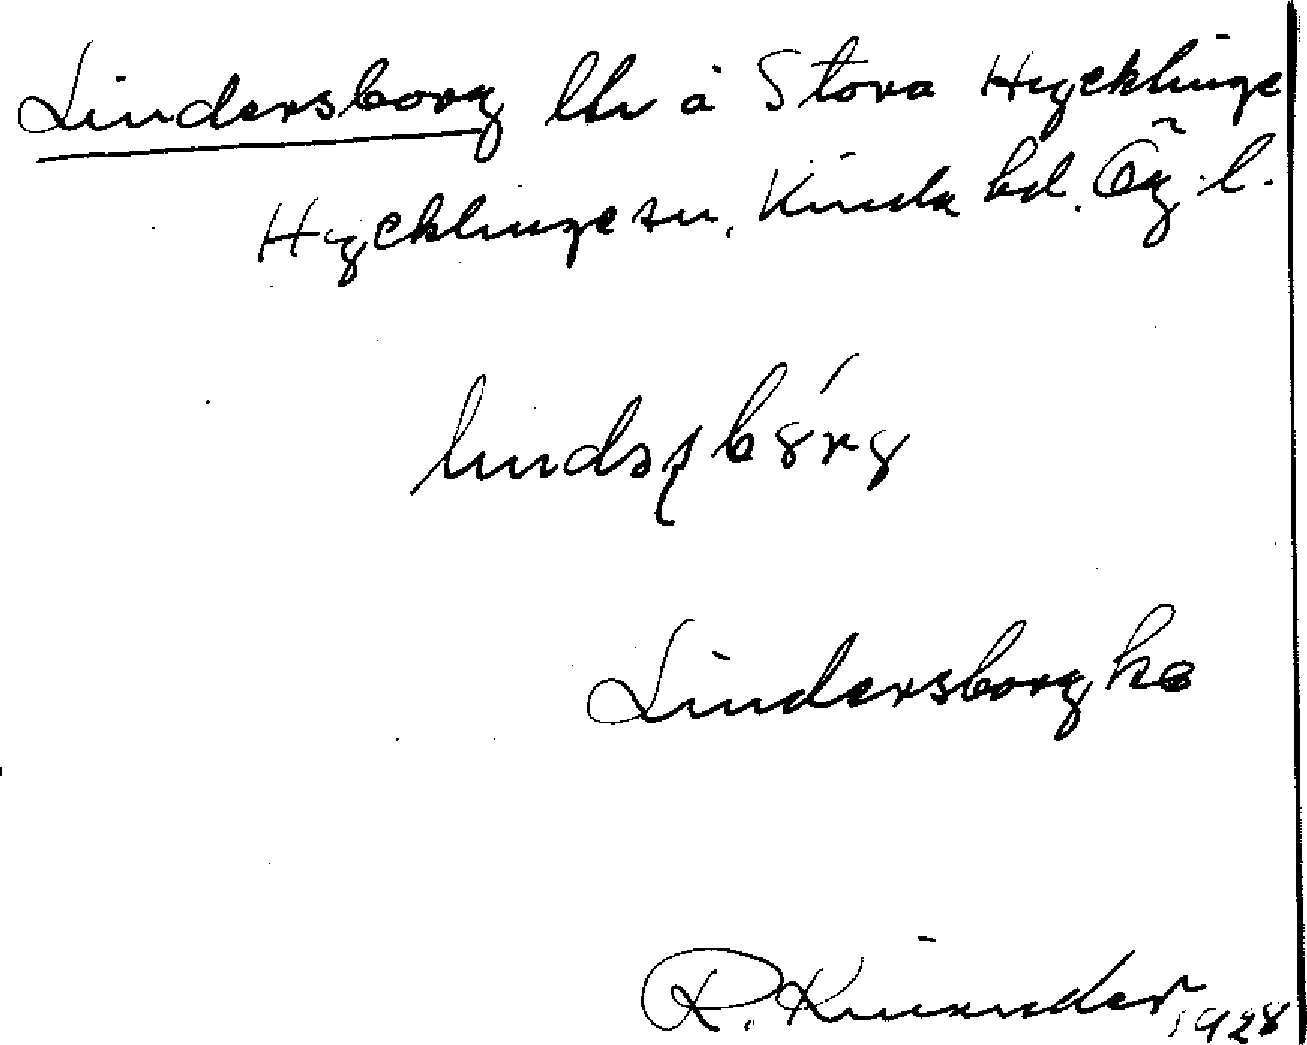 Lindersborg lht å Stora Hycklinge
Hycklinge sn, Kinda hd. Ög. l.
Lindersborg ka
R. Kinander 1928